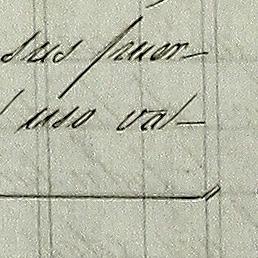 sus puer-
uso val-